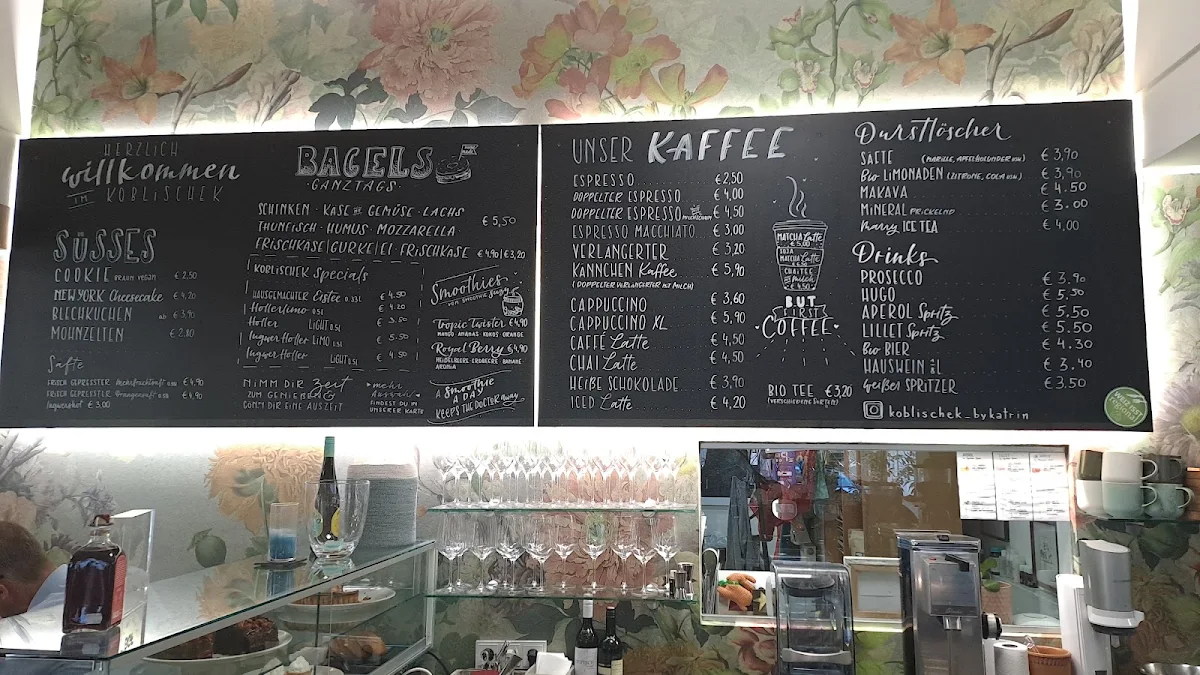 HERZLICH
willkommen
IM KOBLISCHEK
SÜSSES
COOKIE VEGAN € 2,50
NEW YORK Cheesecake € 4,20
BLECHKUCHEN ab € 3,90
MOHNZELTEN € 2,80
Säfte
FRISCH GEPRESSTER Mehrfruchtsaft 0,25l € 4,90
FRISCH GEPRESSTER Orangensaft € 4,90
Ingwershot € 3,00
BAGELS
·GANZTAGS·
SCHINKEN · KÄSE GEMÜSE · LACHS
THUNFISCH · HUMUS · MOZZARELLA € 5,50
FRISCHKÄSE|GURKE|EI · FRISCHKÄSE € 4,90|€ 3,20
KOBLISCHEK Specials
HAUSGEMACHTER Eistee 0,33L € 4,50
Hollerlimo 0,5l € 4,20
Holler LIGHT 0,5l € 3,80
Ingwer Holler LIMO 0,5l € 5,50
Ingwer Holler LIGHT 0,5l € 4,50
NIMM DIR Zeit
ZUM GENIEßEN &
GÖNN DIR EINE AUSZEIT
mehr
Auswahl
FINDEST DU IN
UNSERER KARTE
Smoothies
Tropic Twister €4,90
MANGO ANANAS KOKOS ORANGE
Royal Berry €4,90
HEIDELBEERE ERDBEERE BANANE
ARONIA
A Smoothie
A DAY
KEEPS THE DOCTOR Away
UNSER KAFFEE
ESPRESSO € 2,50
DOPPELTER ESPRESSO € 4,00
DOPPELTER ESPRESSO € 4,50
ESPRESSO MACCHIATO € 3,00
VERLÄNGERTER € 3,20
KÄNNCHEN Kaffee € 5,90
(DOPPELTER VERLÄNGERTER MIT MILCH)
CAPPUCCINO € 3,60
CAPPUCCINO XL € 5,90
CAFFÈ Latte € 4,50
CHAI Latte € 4,50
HEIßE SCHOKOLADE € 3,90
ICED Latte € 4,20
MATCHA Latte
€ 5,00
MATCHA Latte
CHAITEE
€ 4,50
BUT
FIRST
COFFEE
BIO TEE € 3,20
Durstlöscher
SÄFTE (MARILLE, APFEL, HOLUNDER USW) € 3,90
Bio LIMONADEN (ZITRONE, COLA USW) € 3,90
MAKAVA € 4.50
MINERAL PRICKELND € 3.00
Marry ICE TEA € 4,00
Drinks
PROSECCO € 3,90
HUGO € 5.50
APEROL Spritz € 5.50
LILLET Spritz € 5.50
Bio BIER € 4.30
HAUSWEIN € 3.40
Weißer SPRITZER € 3.50
koblischek_bykatrin